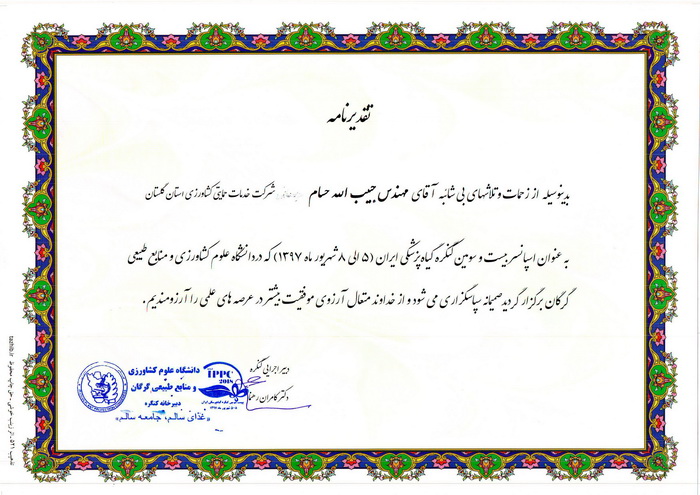 تقدیرنامه
بدینوسیله از زحمات و تلاشهای بی شائبه آقای مهندس حبیب الله حسام شرکت خدمات حمایتی کشاورزی استان گلستان
به عنوان اسپانسر بیست و سومین کنگره گیاه پزشکی ایران (۵ الی ۸ شهریور ماه ۱۳۹۷) که در دانشگاه علوم کشاورزی و منابع طبیعی
گرگان برگزار گردید صمیمانه سپاسگزاری می شود و از خداوند متعال آرزوی موفقیت بیشتر در عرصه های علمی را آرزومندیم.
دبیر اجرایی کنگره
دکتر کامران رهنما
IPPC
2018
دانشگاه علوم کشاورزی
و منابع طبیعی گرگان
دبیرخانه کنگره
«غذای سالم، جامعه سالم»